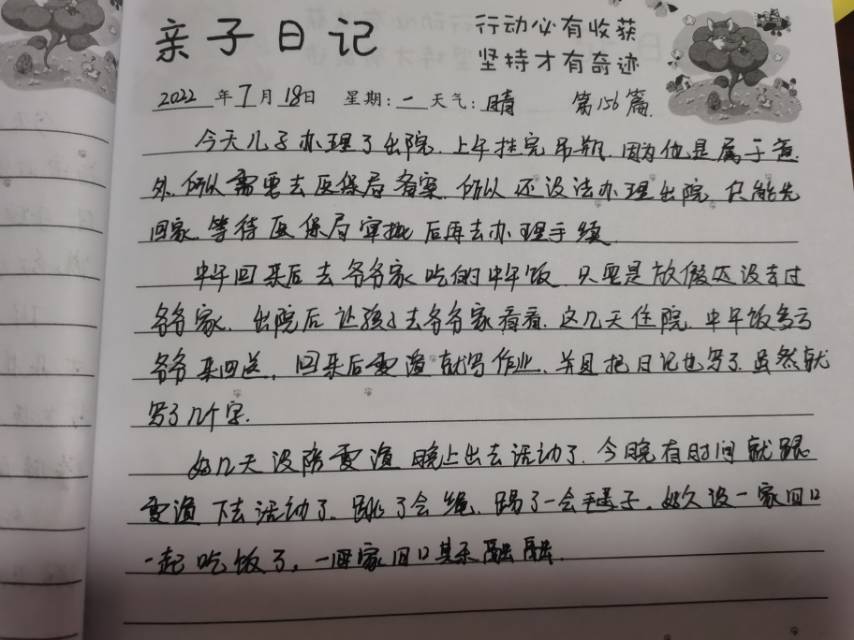 亲子日记
行动必有收获
坚持才有奇迹
2022年7月18日 星期:一 天气:晴 第156篇
今天儿子办理了出院,上午挂完吊瓶,因为他是属于意
外,所以需要去医保局备案,所以还没法办理出院,只能先
回家,等待医保局审批后再去办理手续
中午回来后去爷爷家吃的中午饭,只要是放假还没去过
爷爷家,出院后让孩子去爷爷家看看,这几天住院,中午饭多亏
爷爷来回送,回来后雯渲就写作业,并且把日记也写了,虽然就
写了几个字.
好几天没陪雯渲晚上出去活动了,今晚有时间就跟
雯渲下去活动了,跳了会绳,踢了一会毽子,好久没一家四口
一起吃饭了,一家四口其乐融融